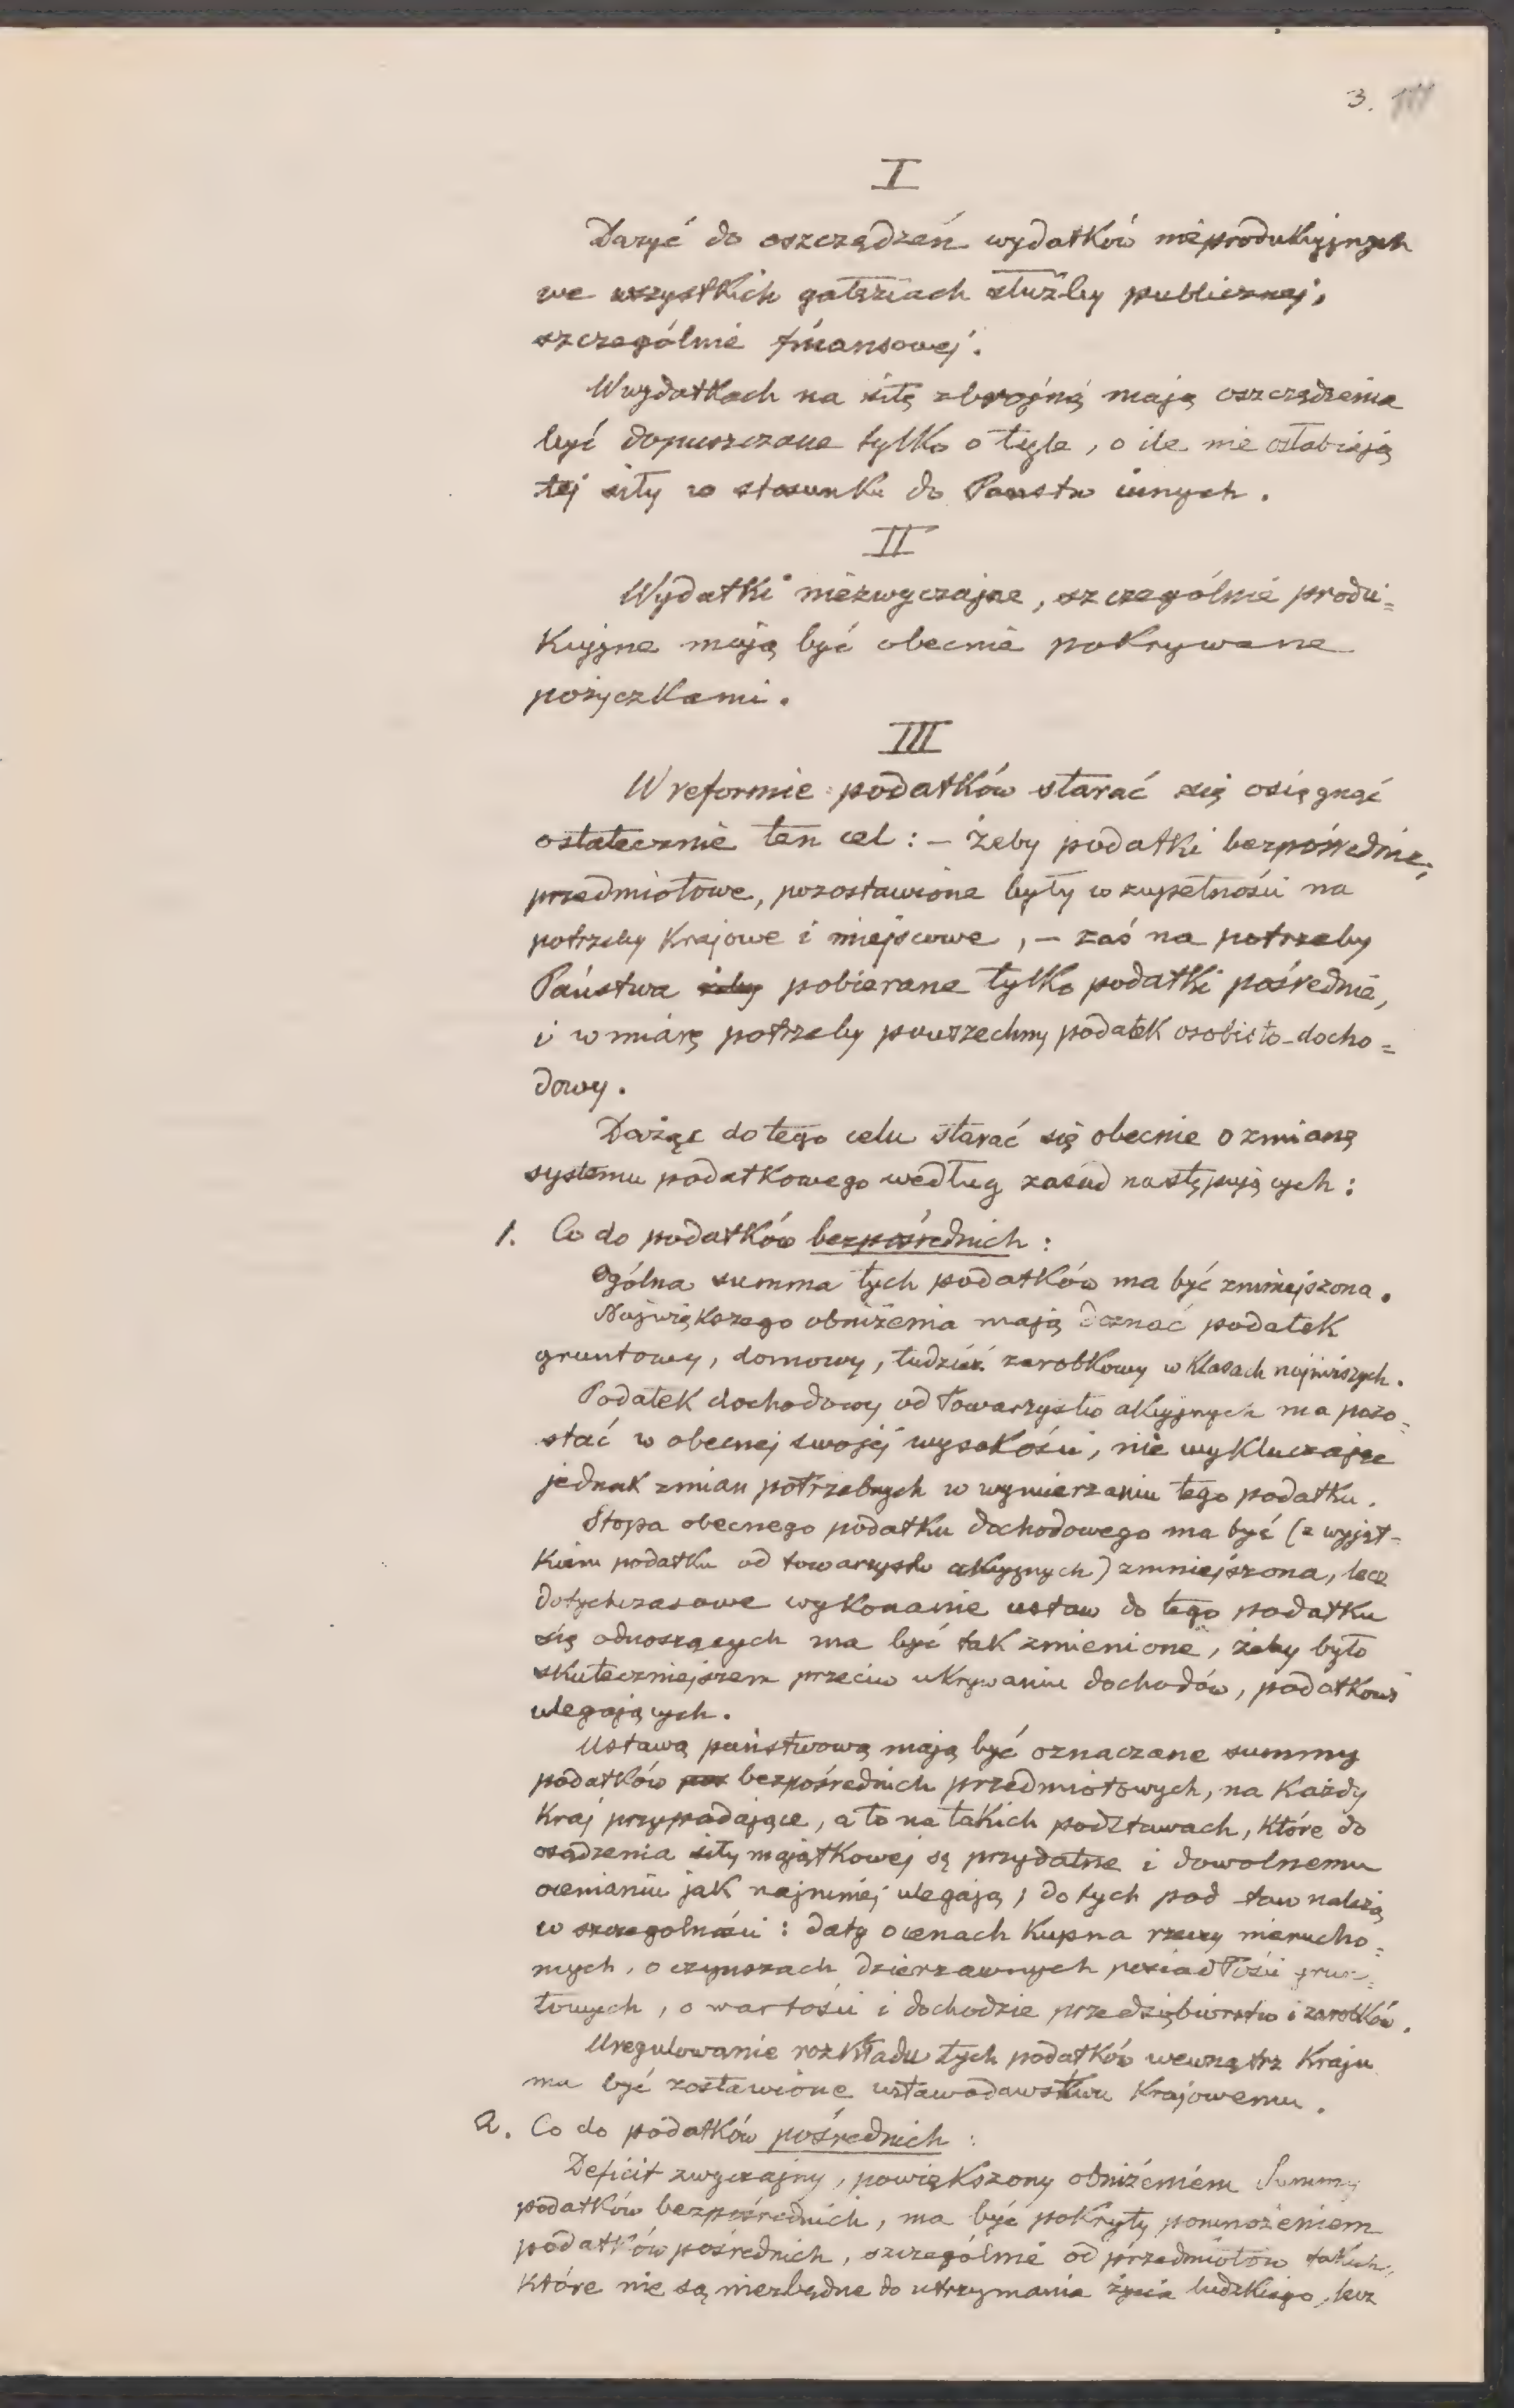 3.
I
Dązyć do oszczędzeń wydatków nieprodukcyjnych
we wszystkich gałęziach służby publicznej,
szczególnie finansowej.
W wydatkach na siłę zbrojną mają oszczędzenia
być dopuszczone tylko o tyle, o ile nie osłabiają
tej siły w stosunku do Państw innych.
II
Wydatki niezwyczajne, szczególnie produ=
kcyjne mają być obecnie pokrywane
pożyczkami.
III
W reformie podatków starać się osięgnąć
ostatecznie ten cel: – żeby podatki bezpośrednie,
przedmiotowe, pozostawione były w zupełności na
potrzeby krajowe i miejscowe, – zaś na potrzeby
Państwa żeby pobierane tylko podatki pośrednie,
i w miarę potrzeby powszechny podatek osobisto-docho=
dowy.
Dążąc do tego celu starać się obecnie o zmianę
systemu podatkowego według zasad następujących:
1. Co do podatków bezpośrednich:
Ogólna summa tych podatków ma być zmniejszona.
Największego obniżenia mają doznać podatek
gruntowy, domowy, tudzież zarobkowy w klasach najniższych.
Podatek dochodowy od towarzystw akcyjnych ma pozo=
stać w obecnej swojej wysokości, nie wykluczając
jednak zmian potrzebnych w wymierzaniu tego podatku.
Stopa obecnego podatku dochodowego ma być (z wyjąt-
kiem podatku od towarzystw akcyjnych) zmniejszona, lecz
dotychczasowe wykonanie ustaw do tego podatku
się odnoszących ma być tak zmienione, żeby było
skuteczniejszem przeciw ukrywaniu dochodów, podatkowi
ulegających.
Ustawą państwową mają być oznaczane summy
podatków bezpośrednich przedmiotowych, na każdy
kraj przypadające, a to na takich podstawach, które do
osądzenia siły majątkowej są przydatne i dowolnemu
ocenianiu jak najmniej ulegają; do tych pod taw należą
w szczególności: daty o cenach kupna rzeczy nierucho=
mych, o czynszach dzierżawnych posiadłości grun=
towych, o wartości i dochodzie przedsiębiorstw i zarobków.
Uregulowanie rozkładu tych podatków wewnątrz kraju
ma być zostawione ustawodawstwu krajowemu.
2. Co do podatków pośrednich:
Deficit zwyczajny, powiększony obniżeniem Summy
podatków bezpośrednich, ma być pokryty pomnożeniem
podatków pośrednich, szczególnie od przedmiotów takich,
które nie są niezbędne do utrzymania życia ludzkiego, lecz